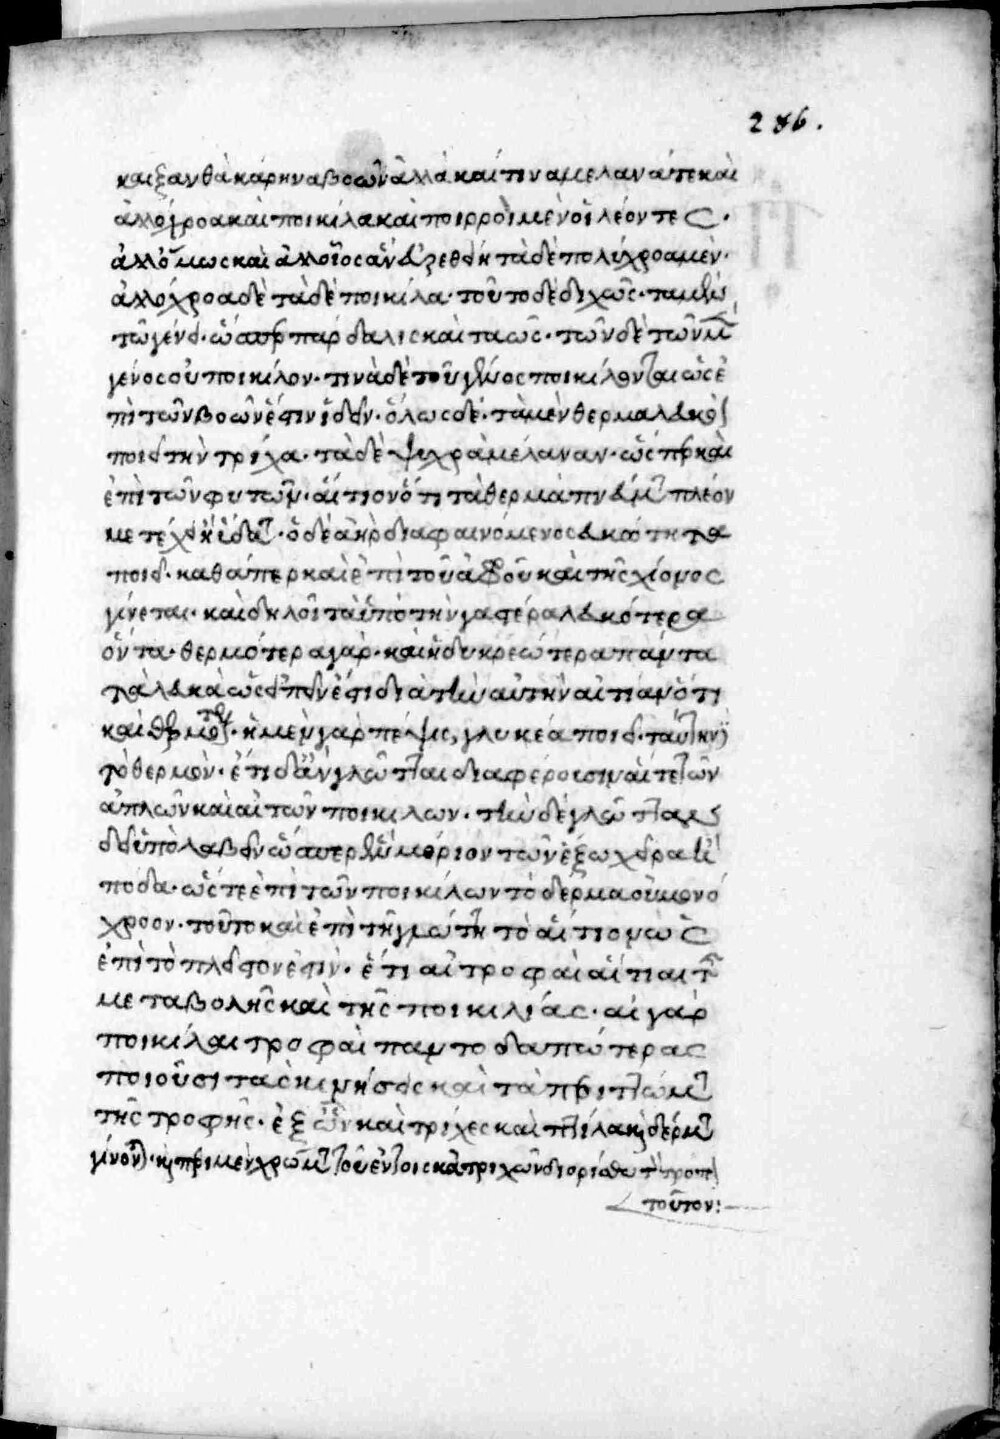 286.
και ξανθὰ κάρηνα βοῶν ἀλλὰ καί τινα μέλανά τε καὶ
ἀλλόχροα καὶ ποικίλα καὶ πυρροὶ μὲν οἱ λέοντες.
ἀλλ' ὅμως καὶ ἀλλοῖος ἂν εὑρεθείη τὰ δὲ πολύχροα μὲν·
ἀλλόχροα δὲ τὰ δὲ ποικίλα· τοῦτο δὲ διχῶς· τὰ μὲν
τῶ γένει· ὥσπερ πάρδαλις καὶ ταώς· τῶν δὲ τῶν μ
γένος οὐ ποικίλον· τινὰ δὲ τοῦ γένους ποικίλλονται ὡς ἐ
πὶ τῶν βοῶν ἔστιν ἰδεῖν· ὅλως δὲ· τὰ μὲν θερμὰ λευκὴν
ποιεῖ τὴν τρίχα· τὰ δὲ ψυχρὰ μέλαιναν· ὥσπερ καὶ
ἐπὶ τῶν φυτῶν· αἴτιον ὅτι τὰ θερμὰ πνεύματος πλέον
μετέχει ἢ ὕδατος· ὁ δὲ ἀὴρ διαφαινόμενος λευκότητα
ποιεῖ· καθάπερ καὶ ἐπὶ τοῦ ἀφροῦ καὶ τῆς χιόνος
γίνεται· καὶ δηλοῖ τὰ ὑπὸ τὴν γαστέρα λευκότερα
ὄντα· θερμότερα γὰρ· καὶ ἡδυκρεώτερα πάντα
τὰ λευκὰ ὡς εἰπεῖν ἐστι διὰ τὴν αὐτὴν αἰτίαν ὅτι
καὶ θερμότερα· ἡ μὲν γὰρ πέψις, γλυκέα ποιεῖ· ταύτην
τὸ θερμὸν· ἔτι δ' ἂν γλῶτται διαφέρουσιν αἵ τε τῶν
ἁπλῶν καὶ αἱ τῶν ποικίλων· τὴν δὲ γλῶτταν
δεῖ ὑπολαβεῖν ὥσπερ ἓν μόριον τῶν ἔξω χεῖρα ἢ
πόδα· ὥστε ἐπὶ τῶν ποικίλων τὸ δέρμα οὐ μονό
χροον· τοῦτο καὶ ἐπὶ τῆ γλώττη τὸ αἴτιον ὡς
ἐπὶ τὸ πλεῖστον ἐστὶν· ἔτι αἱ τροφαὶ αἴτιαι τῆς
μεταβολῆς καὶ τῆς ποικιλίας· αἱ γὰρ
ποικίλαι τροφαὶ παντοδαπώτερας
ποιοῦσι τὰς κινήσεις καὶ τὰ περιττώματα
τῆς τροφῆς· ἐξ ὧν καὶ τρίχες καὶ πτίλα καὶ δέρματα
γίνονται· καὶ περὶ μὲν χρώματος τοῦ ἐν τοῖς καὶ τριχῶν διορίσθω τὸν τρόπον
τοῦτον: